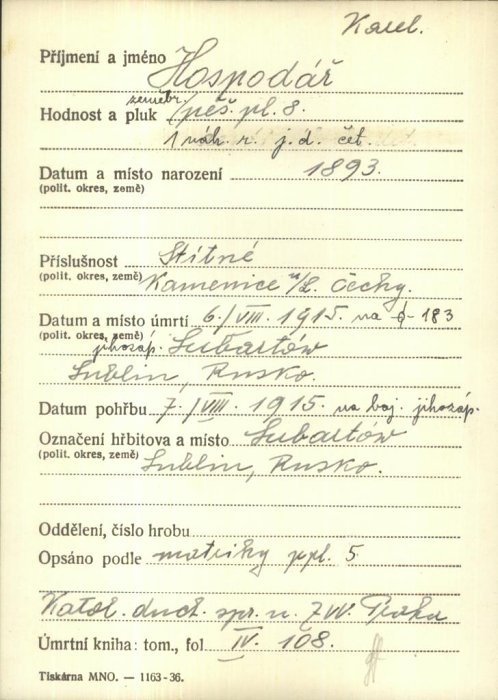 Karel.
Příjmení a jméno Hospodář
zeměbr.
Hodnost a pluk pěš. pl. 8.
1 náh. r. j. d. čet.
Datum a místo narození 1893.
(polit. okres, země)
Příslušnost Stítné
(polit. okres, země) Kamenice n/L. Čechy.
Datum a místo úmrtí 6./VIII. 1915. na 183
(polit. okres, země) jihozáp. Lubartów
Lublin, Rusko.
Datum pohřbu 7./VIII. 1915 na boj. jihozáp.
Označení hřbitova a místo Lubartów
(polit. okres, země) Lublin, Rusko.
Oddělení, číslo hrobu
Opsáno podle matriky ppl. 5
Katol. duch. spr. u ZVV. Praha
Úmrtní kniha: tom., fol IV. 108.
Tiskárna MNO. — 1163-36.